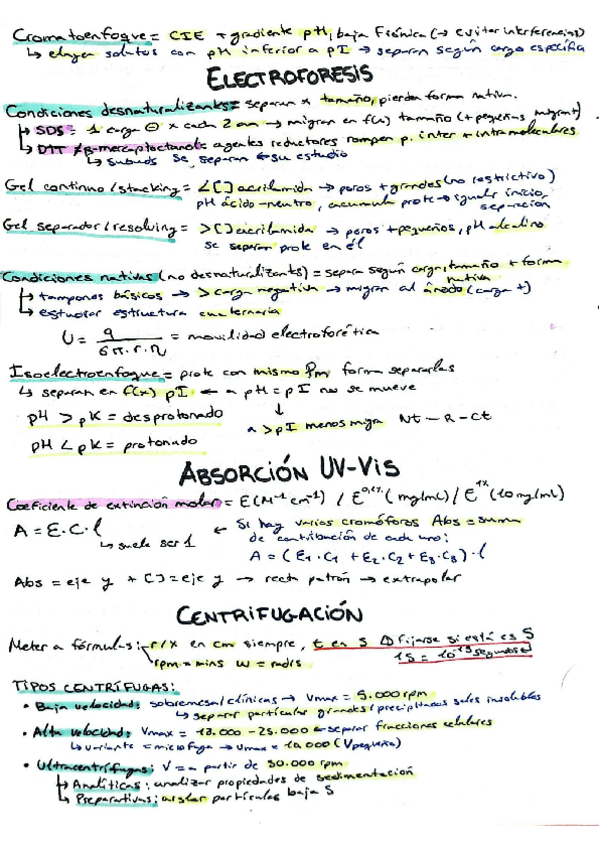 Cromatoenfoque = CIE + gradiente pH, baja F iónica (→ evitar interferencias)
↳ eluyen solutos con pH inferior a pI → separan según carga específica
ELECTROFORESIS
Condiciones desnaturalizantes = separan x tamaño, pierden forma nativa.
↳ SDS = 1 carga ⊖ x cada 2 aa → migran en f(x) tamaño (+ pequeñas migran +)
↳ DTT / β-mercaptoetanol = agentes reductores rompen p. inter + intramoleculares
↳ subuds se separan ← su estudio
Gel continuo / stacking = <[] acrilamida → poros + grandes (no restrictivo)
pH ácido-neutro, acumula prote → igualar inicio separación
Gel separador / resolving = >[] acrilamida → poros + pequeños, pH alcalino
se separan prote en él
Condiciones nativas (no desnaturalizantes) = separa según carga, tamaño + forma nativa
↳ tampones básicos → > carga negativa → migran al ánodo (carga +)
↳ estudiar estructura cuaternaria
U = q / 6π·r·η = movilidad electroforética
Isoelectroenfoque = prote con mismo Pm forma separarlas
↳ separan en f(x) pI ← a pH = pI no se mueve
pH > pK = desprotonado
a > pI menos migra Nt – R – Ct
pH < pK = protonado
ABSORCIÓN UV-VIS
Coeficiente de extinción molar = E (M⁻¹ cm⁻¹) / E⁰'¹% (mg/mL) / E¹% (10 mg/mL)
A = E · C · l ← Si hay varios cromóforos Abs = suma
↳ suele ser 1 de contribución de cada uno:
A = (E₁·C₁ + E₂·C₂ + E₃·C₃) · l
Abs = eje y + [] = eje y → recta patrón → extrapolar
CENTRIFUGACIÓN
Meter a fórmulas: r/x en cm siempre, t en S ⚠ fijarse si está es S
rpm x mins W = rad/s 1S = 10⁻¹³ segundos
TIPOS CENTRÍFUGAS:
• Baja velocidad: sobremesa / clínicas → Vmax = 5.000 rpm
↳ separar partículas grandes / precipitados sales insolubles
• Alta velocidad: Vmax = 18.000 - 25.000 ← separar fracciones celulares
↳ variante = microfuga → Vmax = 10.000 (V pequeño)
• Ultracentrífugas: V = a partir de 30.000 rpm
↳ Analíticas: analizar propiedades de sedimentación
↳ Preparativas: aislar partículas baja S